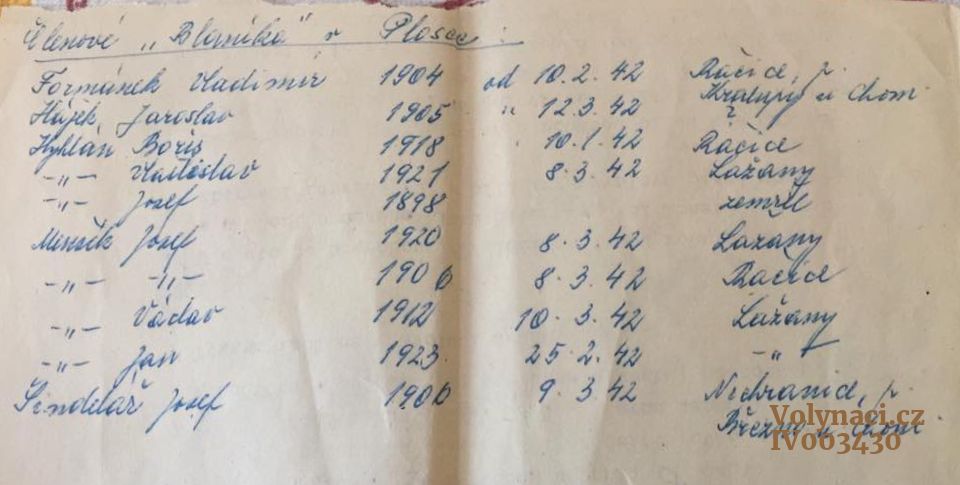 Členové „Blaníka" v Plosce:
Formánek Vladimír 1904 od 10.2.42 Račice, p.
Kralupy u Chom.
Hájek Jaroslav 1905 " 12.3.42 ?
Hyhlán Boris 1918 10.1.42 Račice
-„- Vratislav 1921 8.3.42 Lažany
-„- Josef 1898 zemřel
Menšík Josef 1920 8.3.42 Lažany
-„- -„- 1906 8.3.42 Račice
-„- Václav 1912 10.3.42 Lažany
-„- Jan 1923 25.2.42 -„-
Šindelář Josef 1906 9.3.42 Nechranice, p.
Březno u Chom.
Volynaci.cz
IV003430